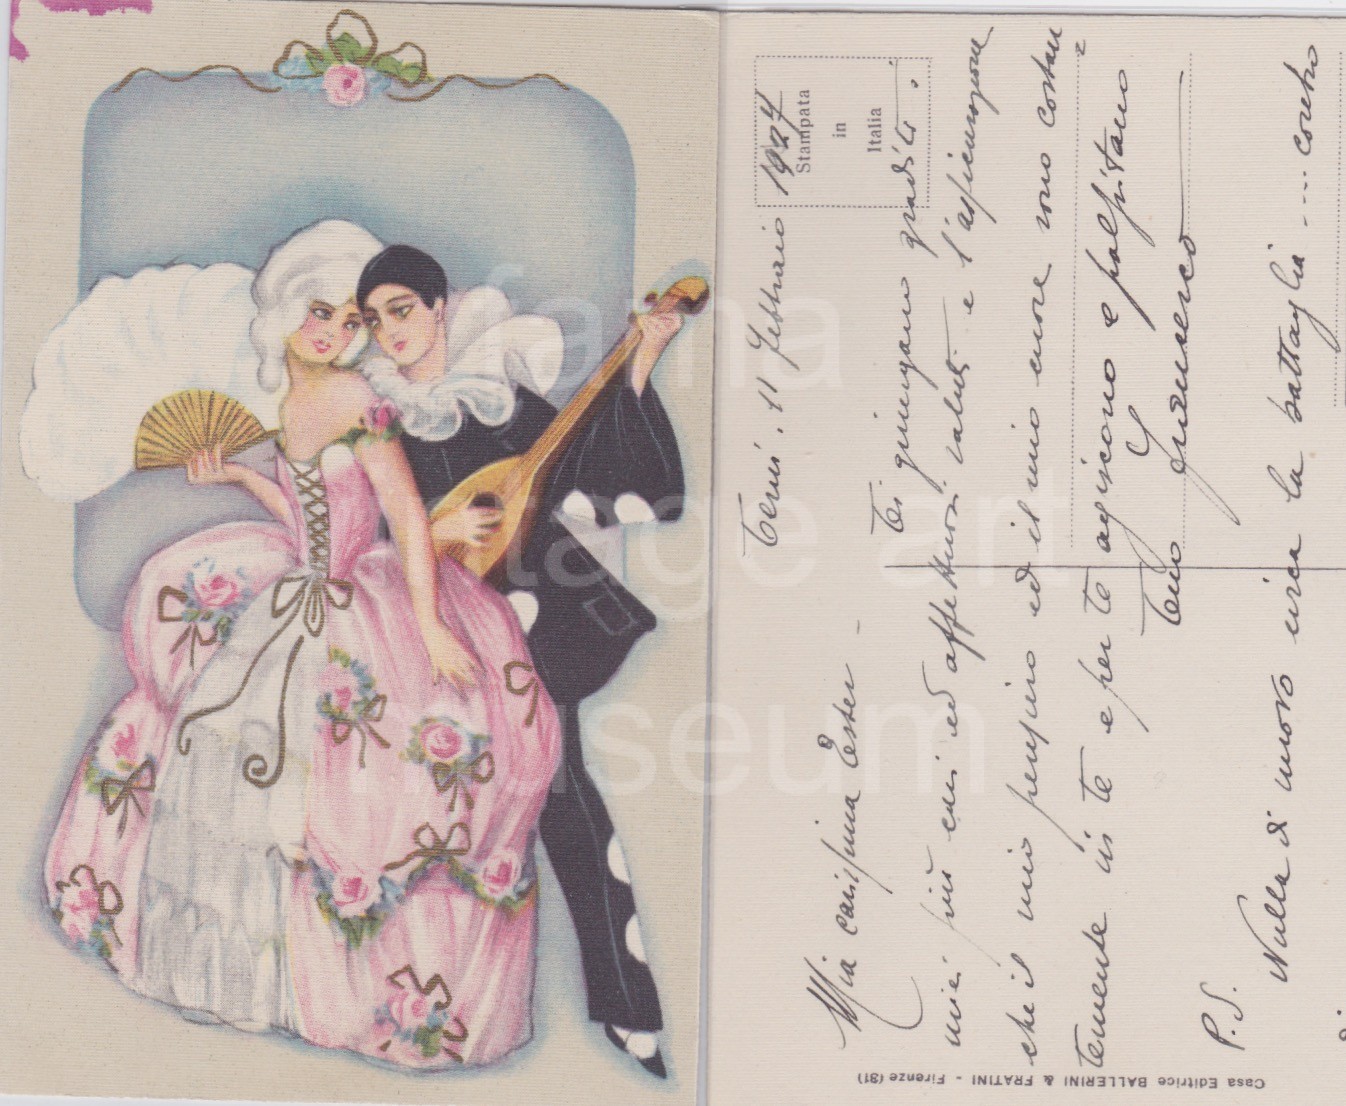 Terni, 11 Febbraio 1927
Mia carissima Ester -
Ti giungano graditi i
miei più cari ed affettuosi saluti e l'assicurazione
che il mio pensiero ed il mio cuore sono costan
temente in te e per te agiscono e palpitano
Tuo
Francesco
P.S.
Nulla di nuovo circa la battaglia .... contro
Stampata
in
Italia
Casa Editrice BALLERINI & FRATINI - Firenze (31)
fama
vintage art
museum